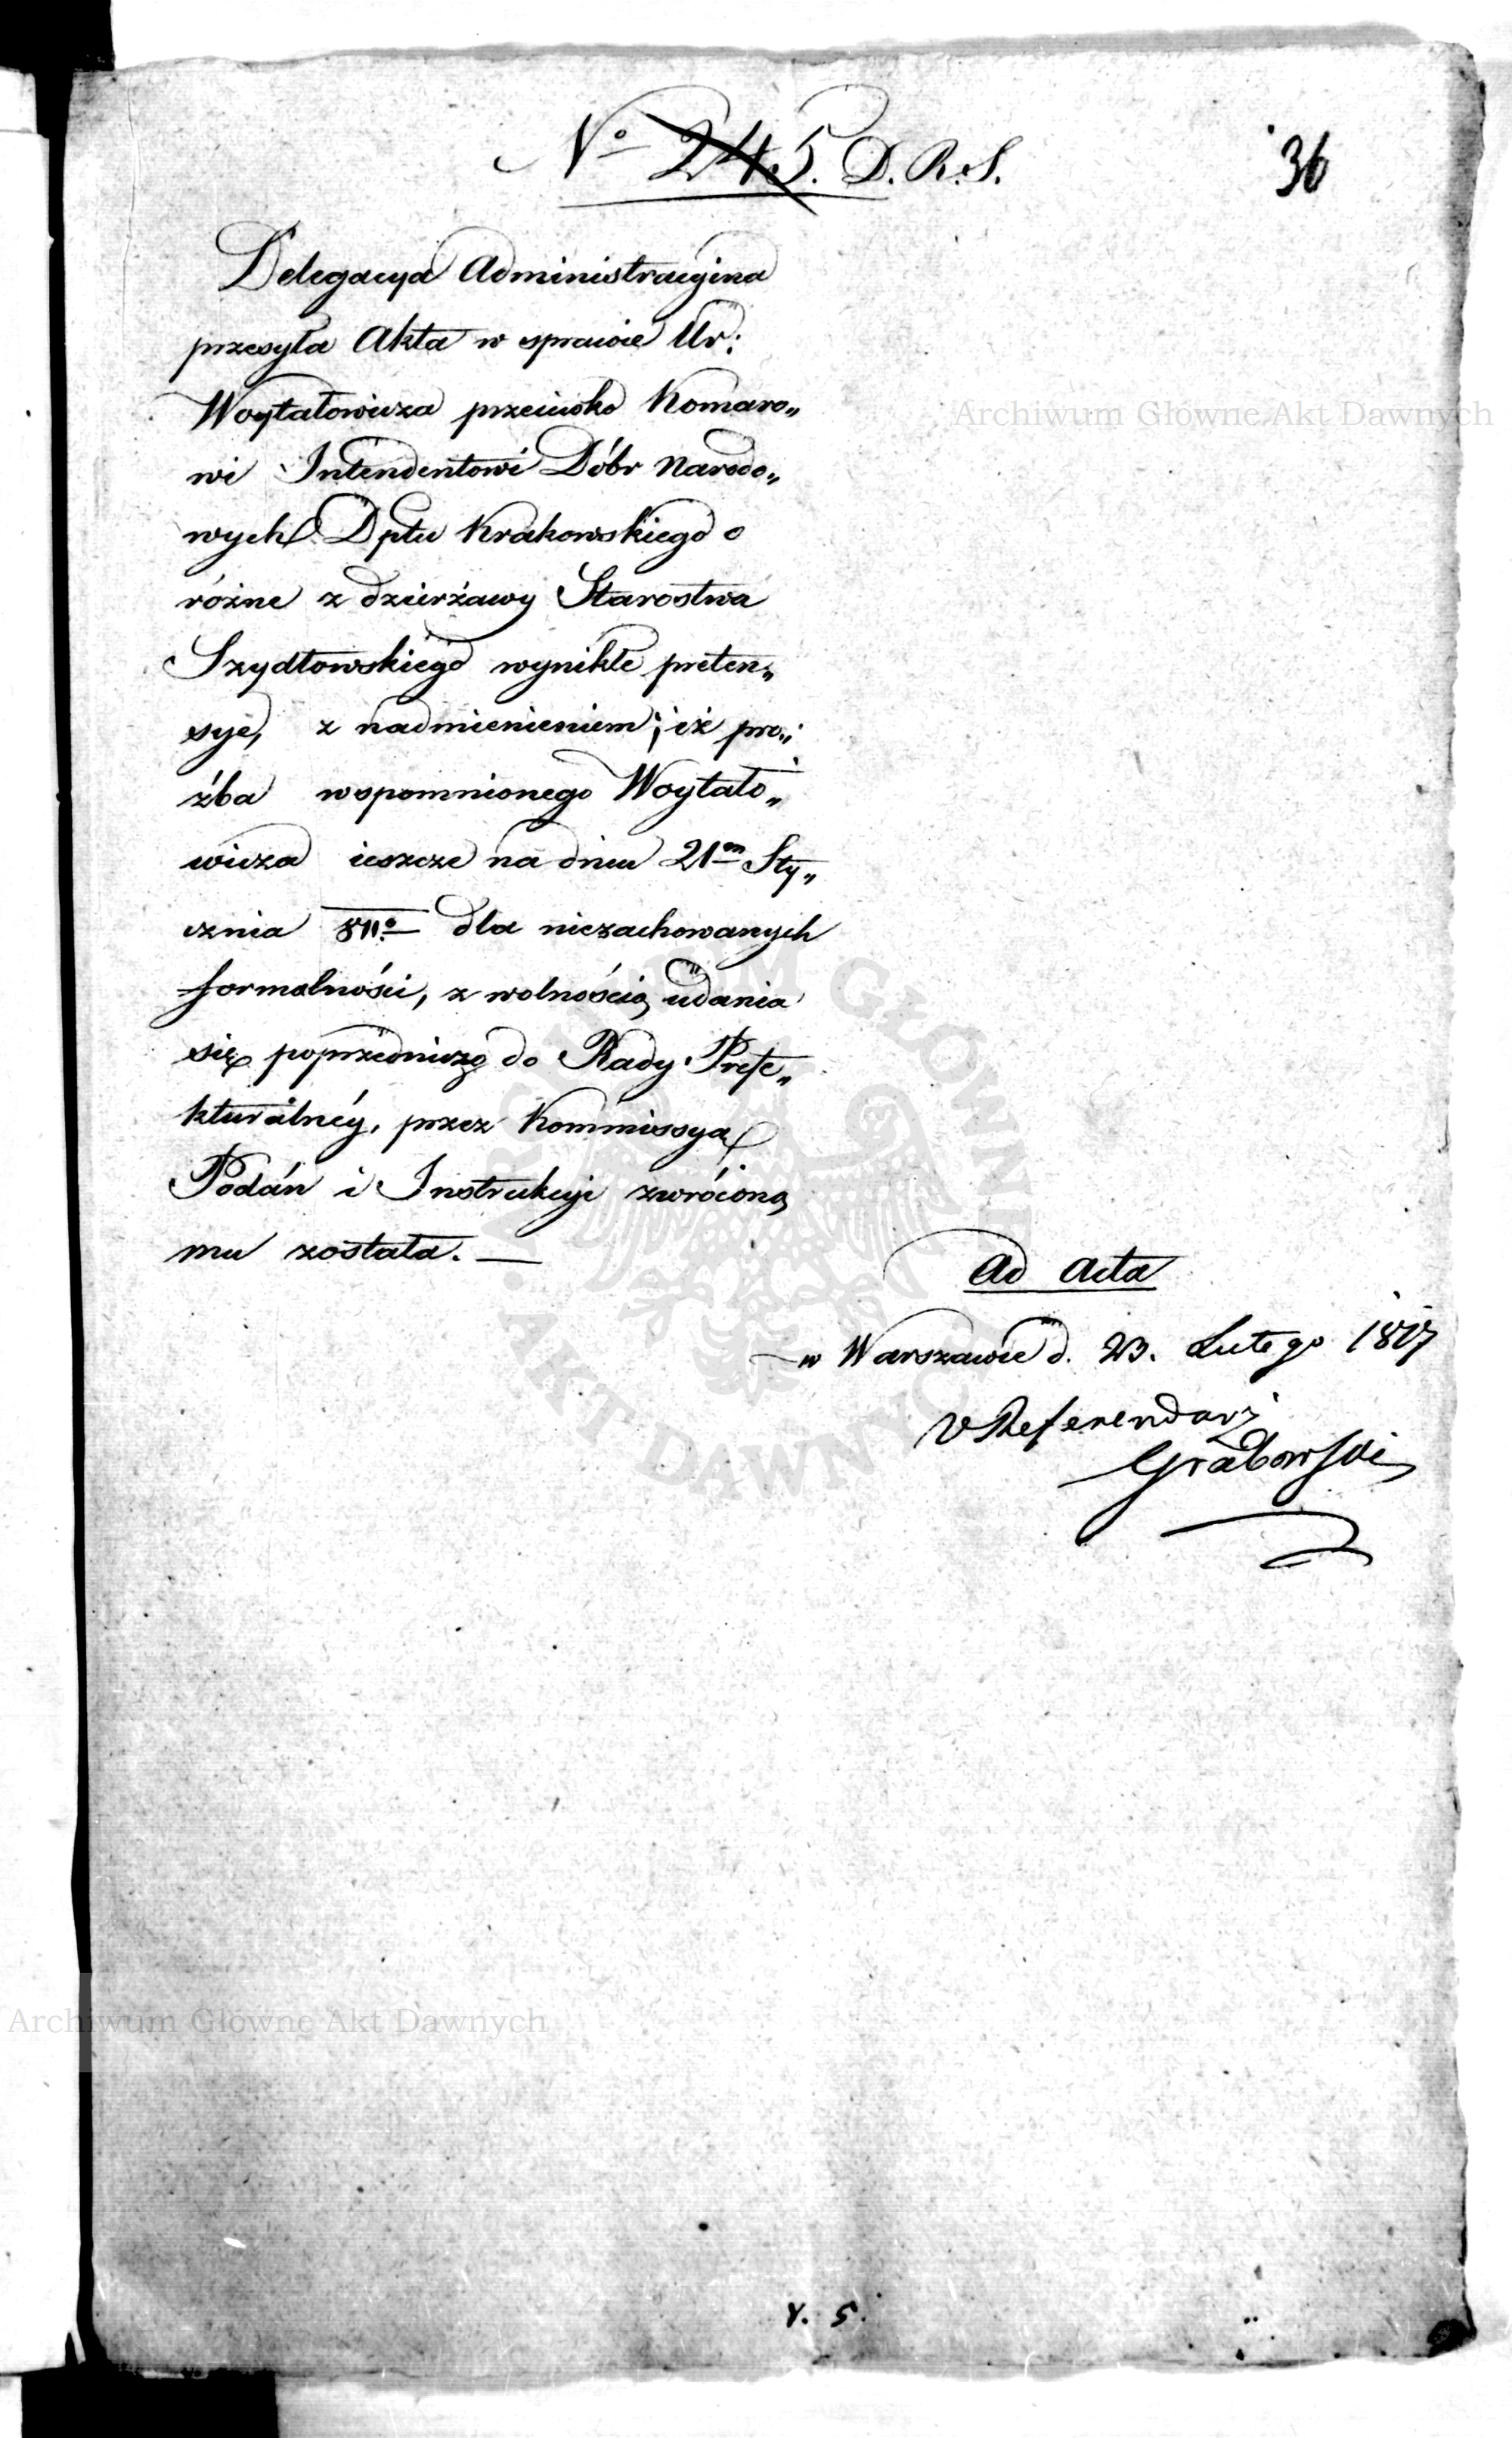 No 245. D. R. S.
36
Delegacya Administracyina
przesyła Akta w sprawie Ur:
Woytałowicza przeciwko Komaro„
wi Intendentowi Dóbr Narodo„
wych Dptu Krakowskiego o
różne z dzierżawy Starostwa
Szydłowskiego wynikłe preten„
sye, z nadmienieniem; iż pro„
źba wspomnionego Woytało„
wicza ieszcze na dniu 21m Sty„
cznia 811o dla niezachowanych
formalności, z wolnością udania
się poprzedniczo do Rady Prefe„
kturalnéy, przez Kommissyą
Podań i Instrukcyi zwróconą
mu została. —
Ad Acta
w Warszawie d. 23. Lutego 1817
V Referendarz
Grabowski
Archiwum Główne Akt Dawnych
ARCHIWUM GŁÓWNE AKT DAWNYCH
Archiwum Główne Akt Dawnych